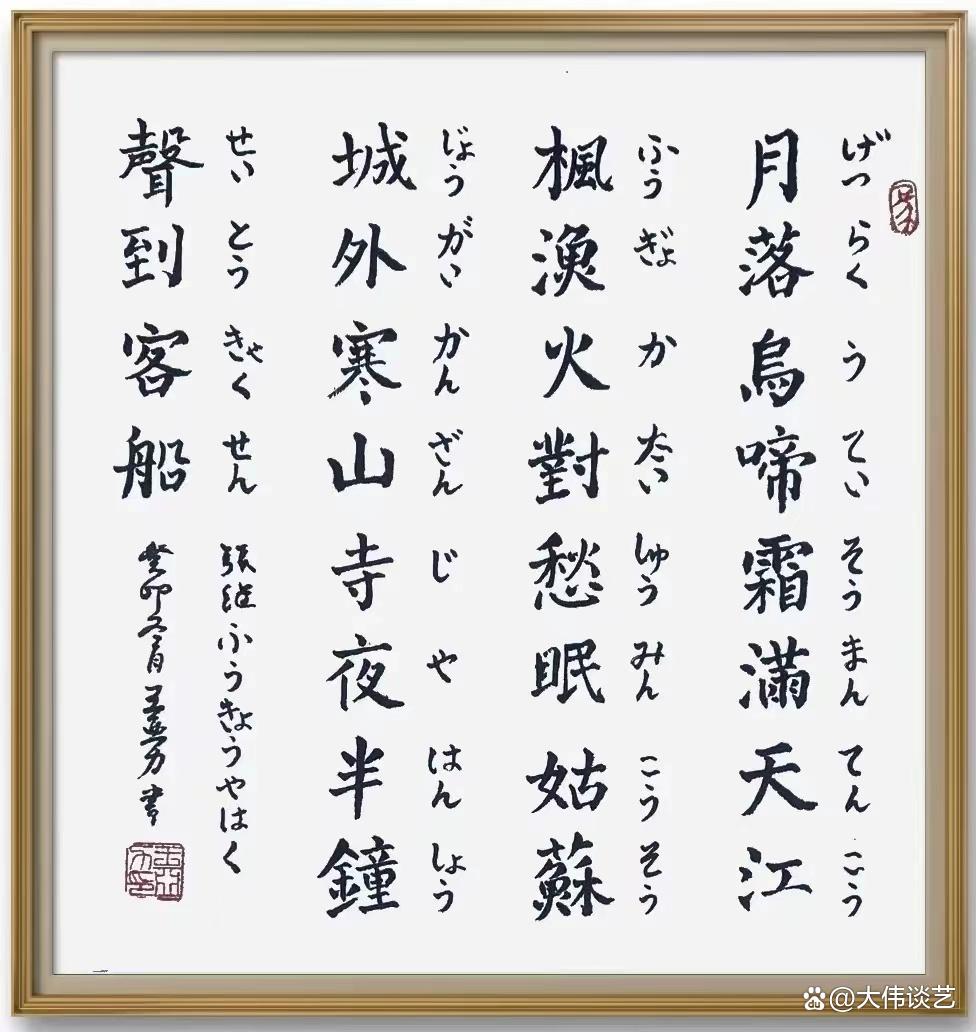 げつらくうていそうまんてんこう
月落烏啼霜滿天江
ふうぎょかたいしゅうみんこうそう
楓漁火對愁眠姑蘇
じょうがいかんざんじやはんしょう
城外寒山寺夜半鐘
せいとうきゃくせん
聲到客船
張継ふうきょうやはく
癸卯冬月王英勇書
@大伟谈艺